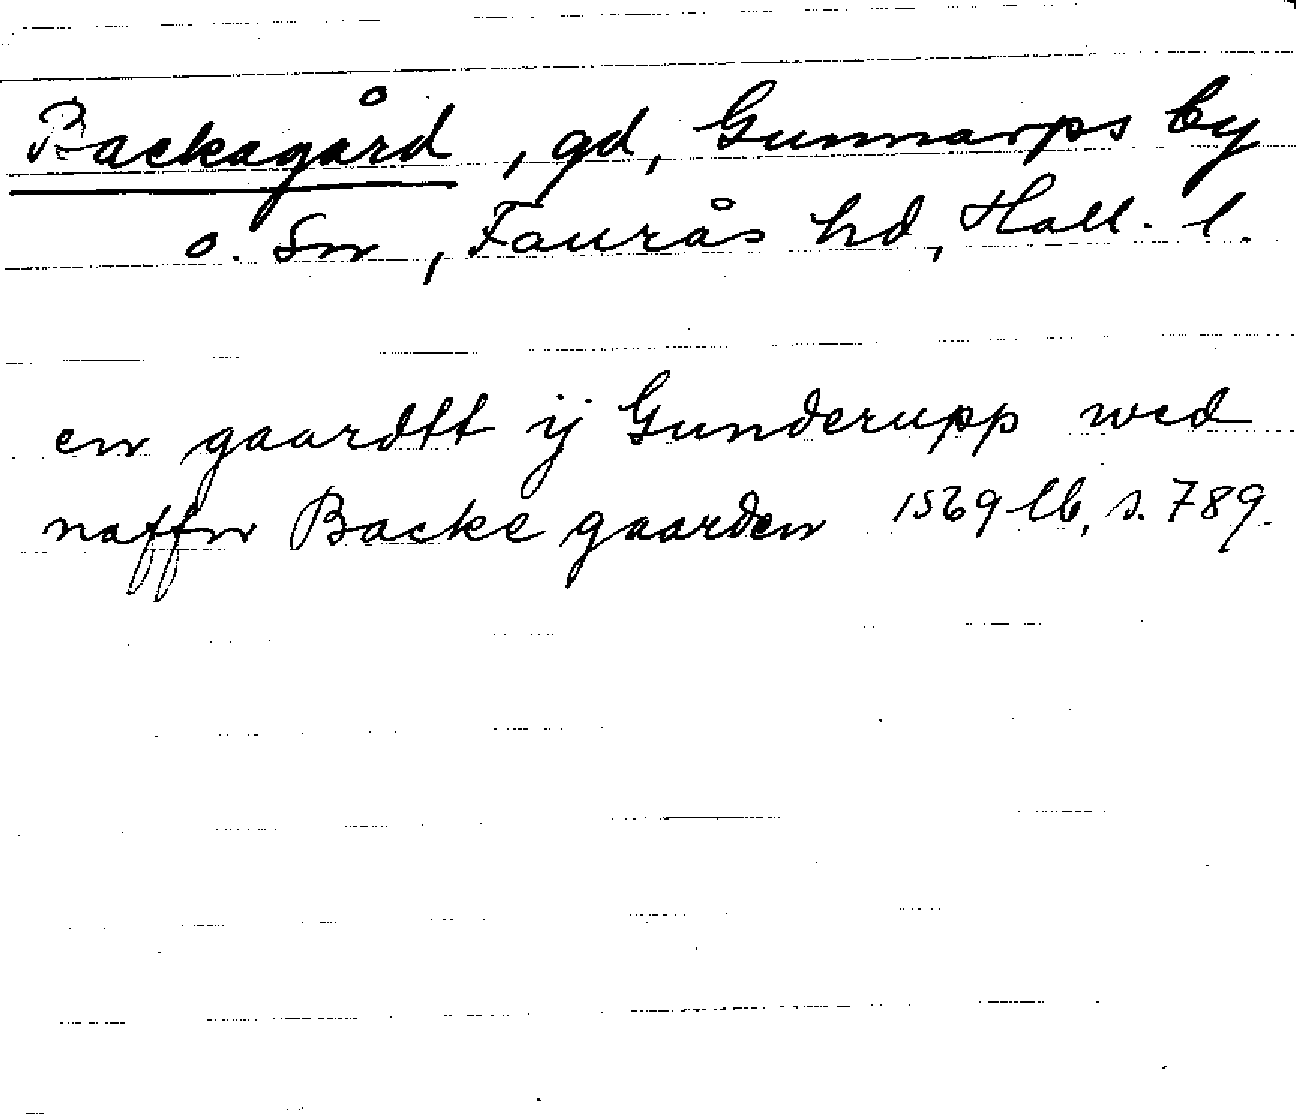 Backagård, gd, Gunnarps by
o. sn, Faurås hd, Hall. l.
en gaardtt ij Gunderupp wed
naffn Backe gaarden 1569 lb, s. 789.